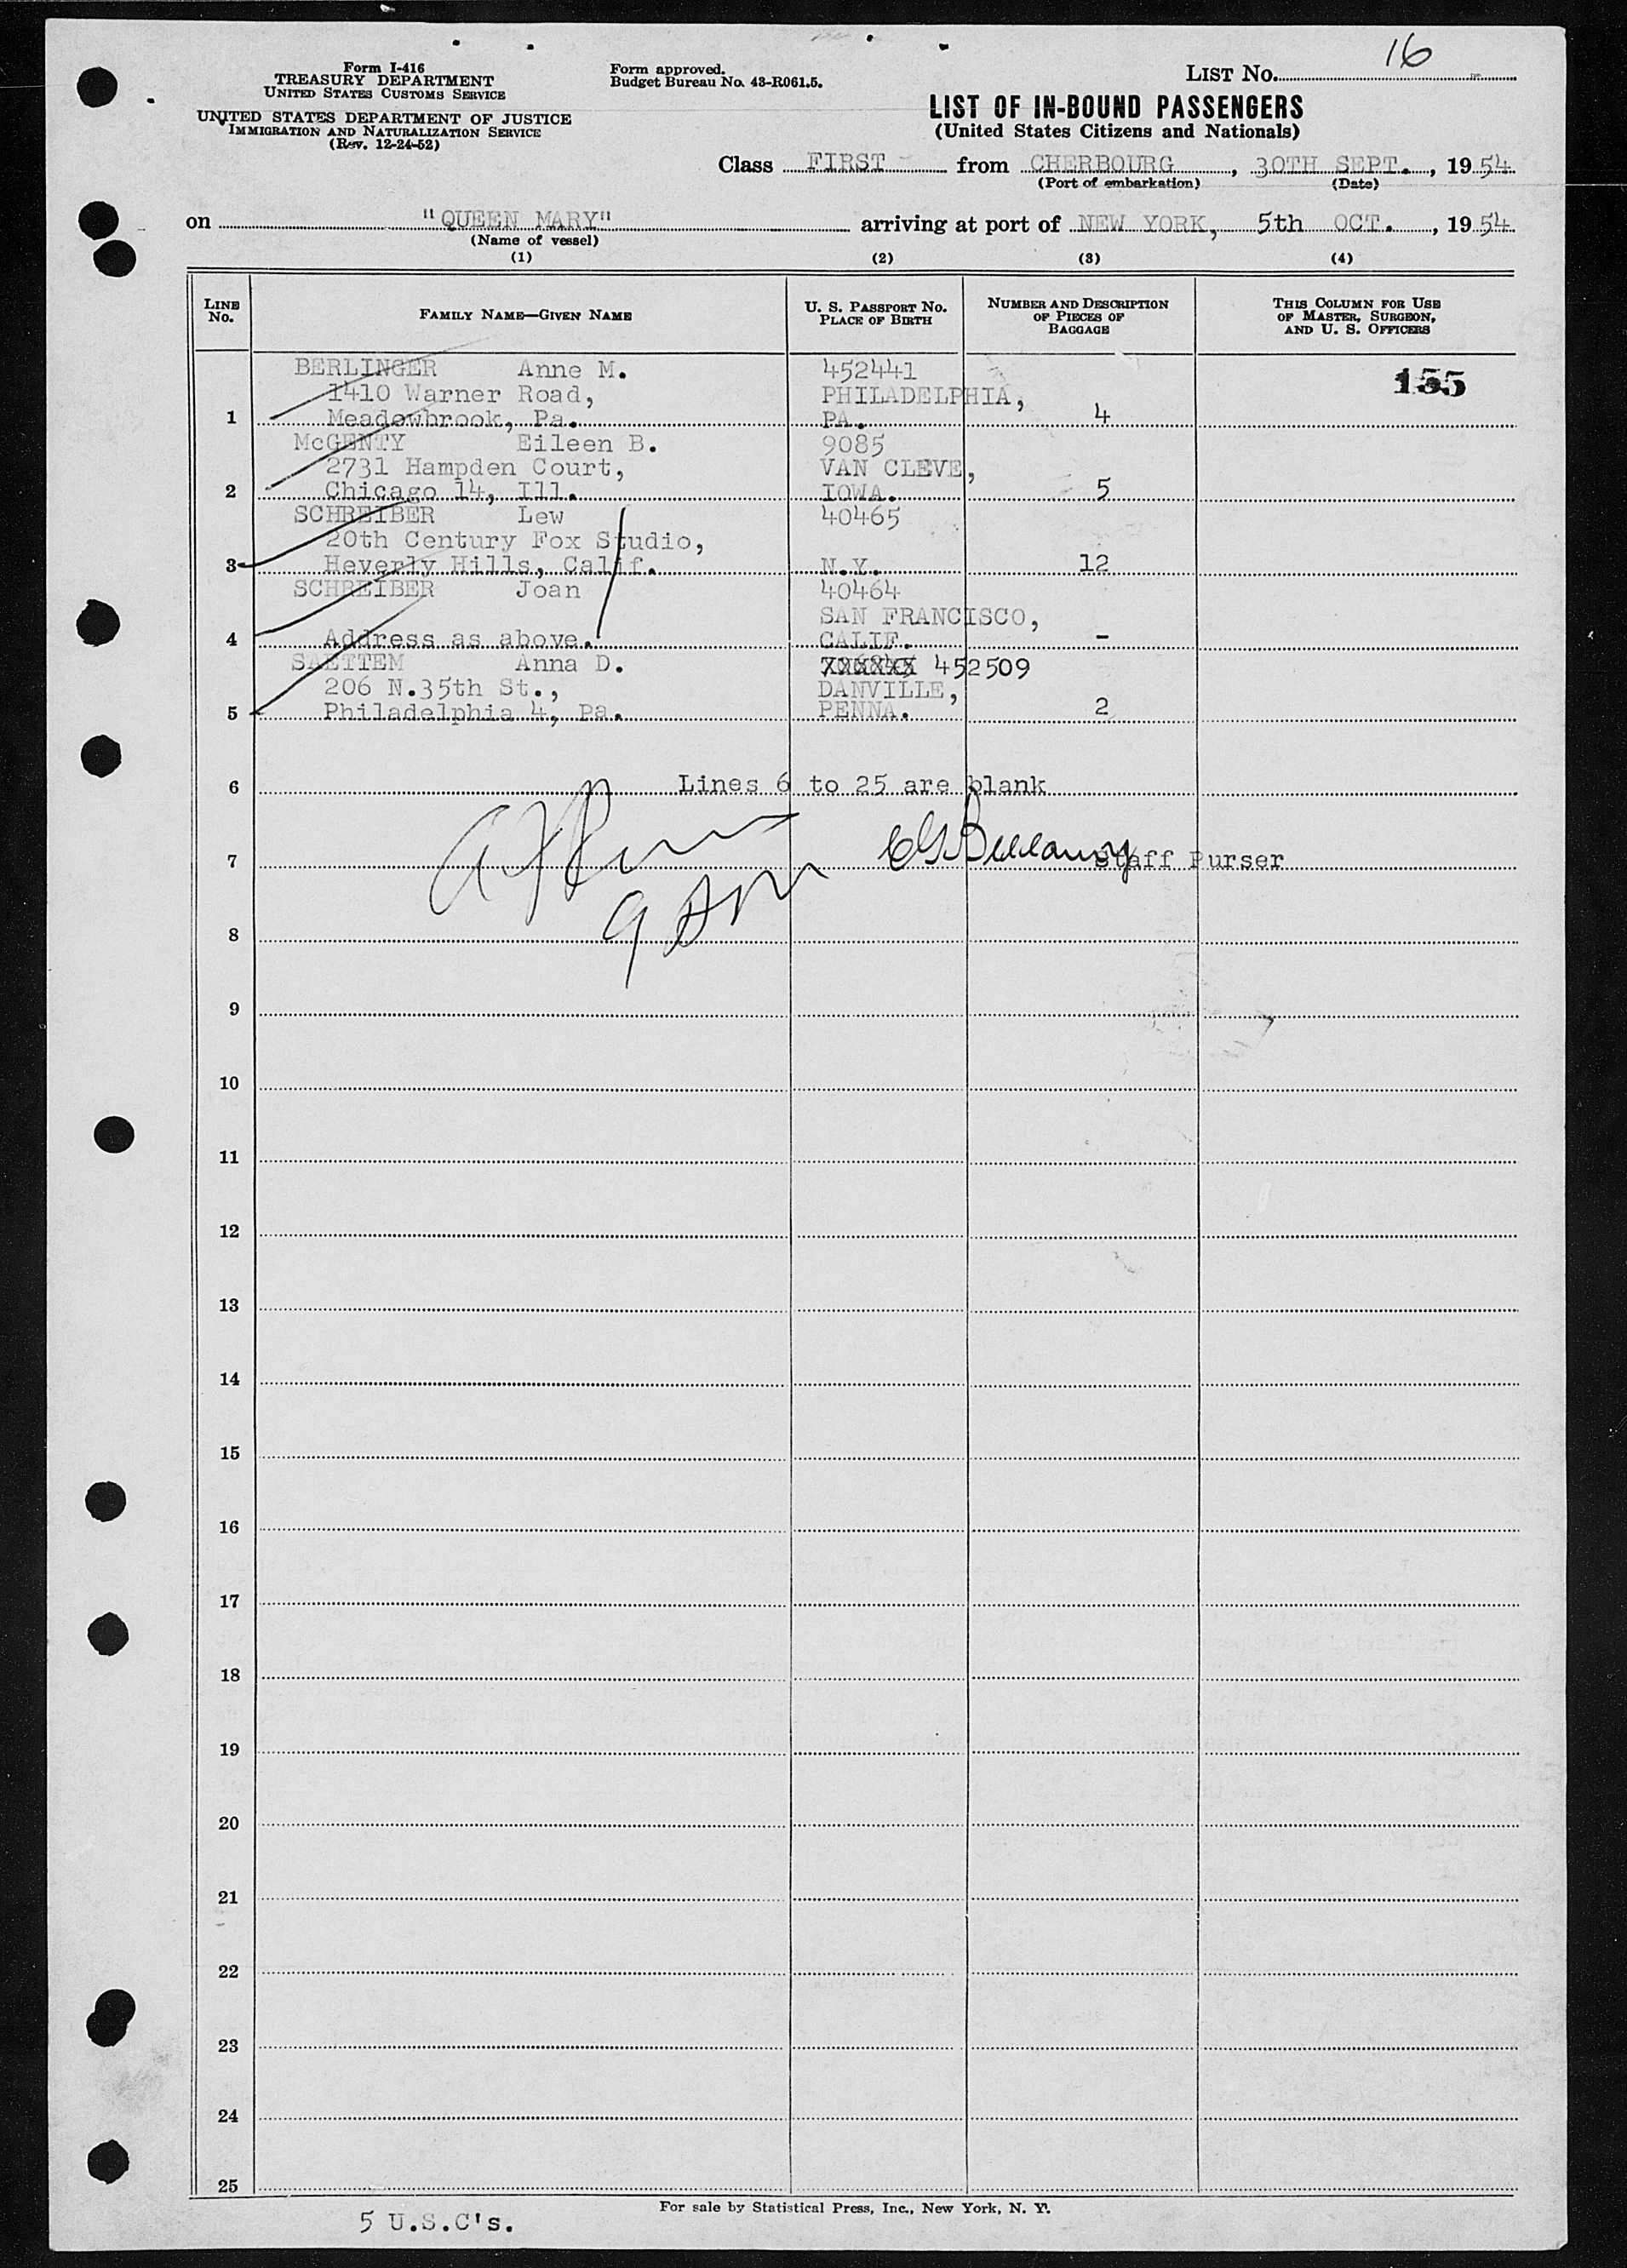 16
Form I-416
TREASURY DEPARTMENT
UNITED STATES CUSTOMS SERVICE
UNITED STATES DEPARTMENT OF JUSTICE
IMMIGRATION AND NATURALIZATION SERVICE
(Rev. 12-24-52)
Form approved.
Budget Bureau No. 43-R061.5.
LIST No.
LIST OF IN-BOUND PASSENGERS
(United States Citizens and Nationals)
Class FIRST from CHERBOURG, 30TH SEPT., 1954
(Port of embarkation) (Date)
on "QUEEN MARY" arriving at port of NEW YORK, 5th OCT., 1954
(Name of vessel)
(1) (2) (3) (4)
LINE No. FAMILY NAME—GIVEN NAME U. S. PASSPORT NO. PLACE OF BIRTH NUMBER AND DESCRIPTION OF PIECES OF BAGGAGE THIS COLUMN FOR USE OF MASTER, SURGEON, AND U. S. OFFICERS
BERLINGER Anne M. 452441 155
1410 Warner Road, PHILADELPHIA,
1 Meadowbrook, Pa. PA. 4
McGENTY Eileen B. 9085
2731 Hampden Court, VAN CLEVE,
2 Chicago 14, Ill. IOWA. 5
SCHREIBER Lew 40465
20th Century Fox Studio,
3 Heverly Hills, Calif. N.Y. 12
SCHREIBER Joan 40464
SAN FRANCISCO,
4 Address as above. CALIF. -
SAETTEM Anna D. 452509
206 N.35th St., DANVILLE,
5 Philadelphia 4, Pa. PENNA. 2
6 Lines 6 to 25 are blank
7 Staff Purser
8
9
10
11
12
13
14
15
16
17
18
19
20
21
22
23
24
25
For sale by Statistical Press, Inc., New York, N. Y.
5 U.S.C's.